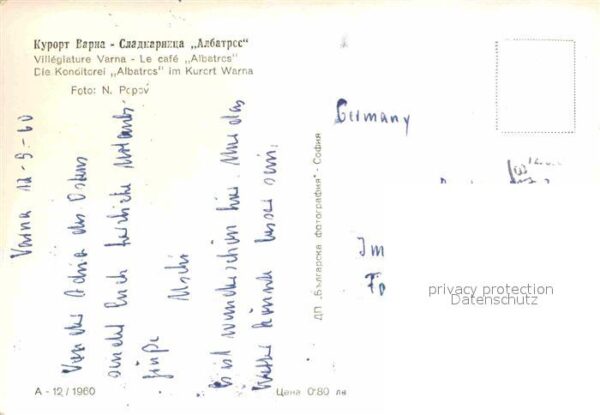 Курорт Варна - Сладкарница „Албатрос"
Villégiature Varna - Le café „Albatros"
Die Konditorei „Albatros" im Kurort Warna
Foto: N. Popov
Varna 12-9-60
Von der Adria des Ostens
sendet Euch herzliche Urlaubs-
grüße
Es ist wunderschön hier. Nur das
Wetter könnte besser sein.
ДП „Българска фотография" - София
Germany
Im
privacy protection
Datenschutz
А - 12 / 1960
Цена 0·80 лв